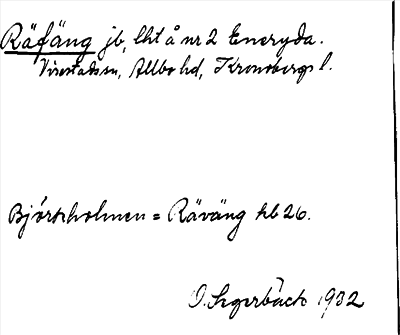 Räfäng jb, lht å nr 2 Eneryda.
Virestads sn, Allbo hd, Kronobergs l.
Björkholmen = Räväng hb 26.
O. Segerbäck 1932